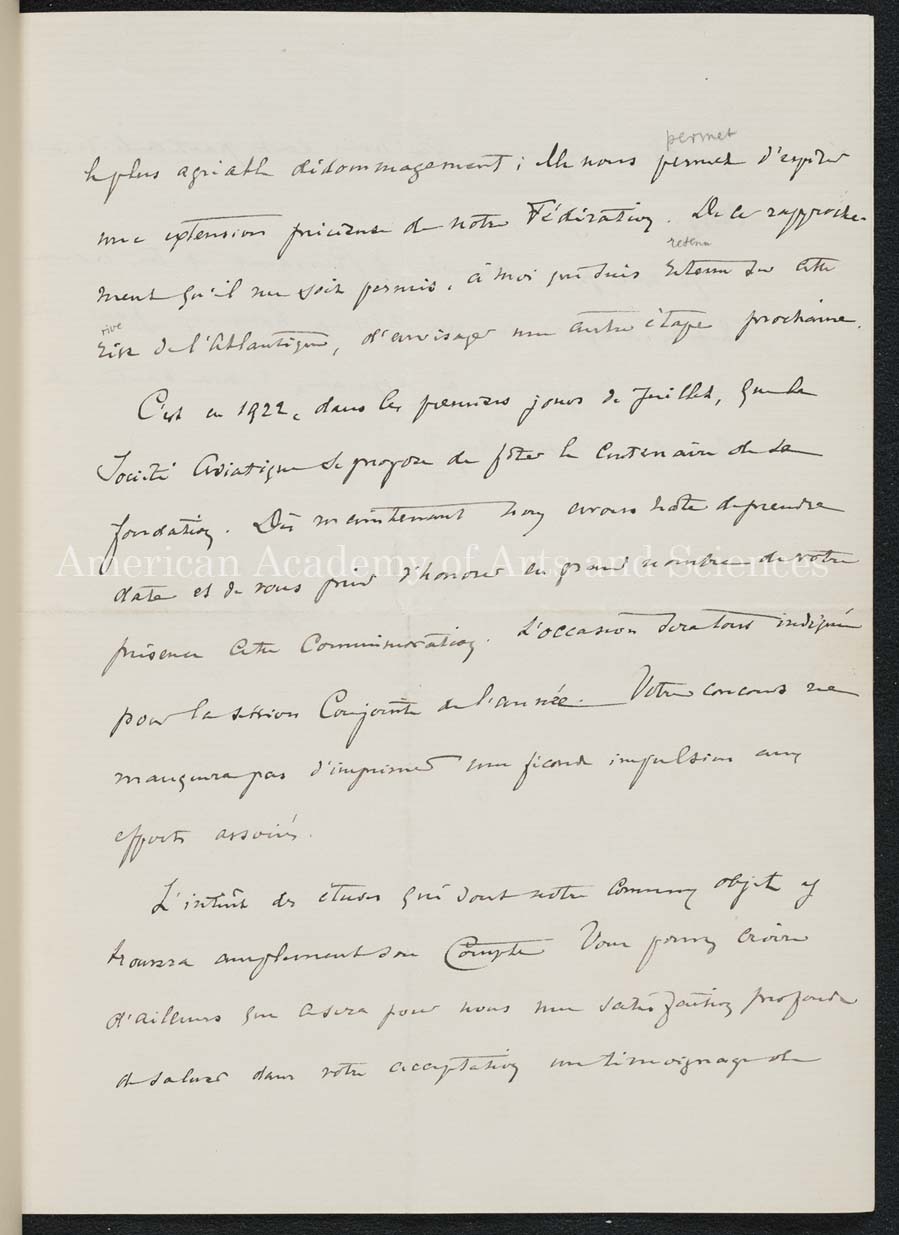 permet
le plus agréable dédommagement ; elle nous permet d'espérer
une extension précieuse de notre Fédération. De ce rapproche-
retenu
ment qu'il me soit permis, à moi qui suis retenu sur cette
rive
rive de l'Atlantique, d'envisager une autre étape prochaine.
C'est en 1922, dans les premiers jours de Juillet, que la
Société Asiatique se propose de fêter le Centenaire de sa
fondation. Dès maintenant nous avons hâte de prendre
American Academy of Arts and Sciences
date et de vous prier d'honorer en grand nombre de votre
présence cette Commémoration. L'occasion sera tout indiquée
pour la session Conjointe de l'année. Votre concours ne
manquera pas d'imprimer une féconde impulsion aux
efforts associés.
L'intérêt des études qui sont notre commun objet y
trouvera amplement son Compte. Vous pouvez croire
d'ailleurs que ce sera pour nous une satisfaction profonde
de saluer dans votre acceptation un témoignage de